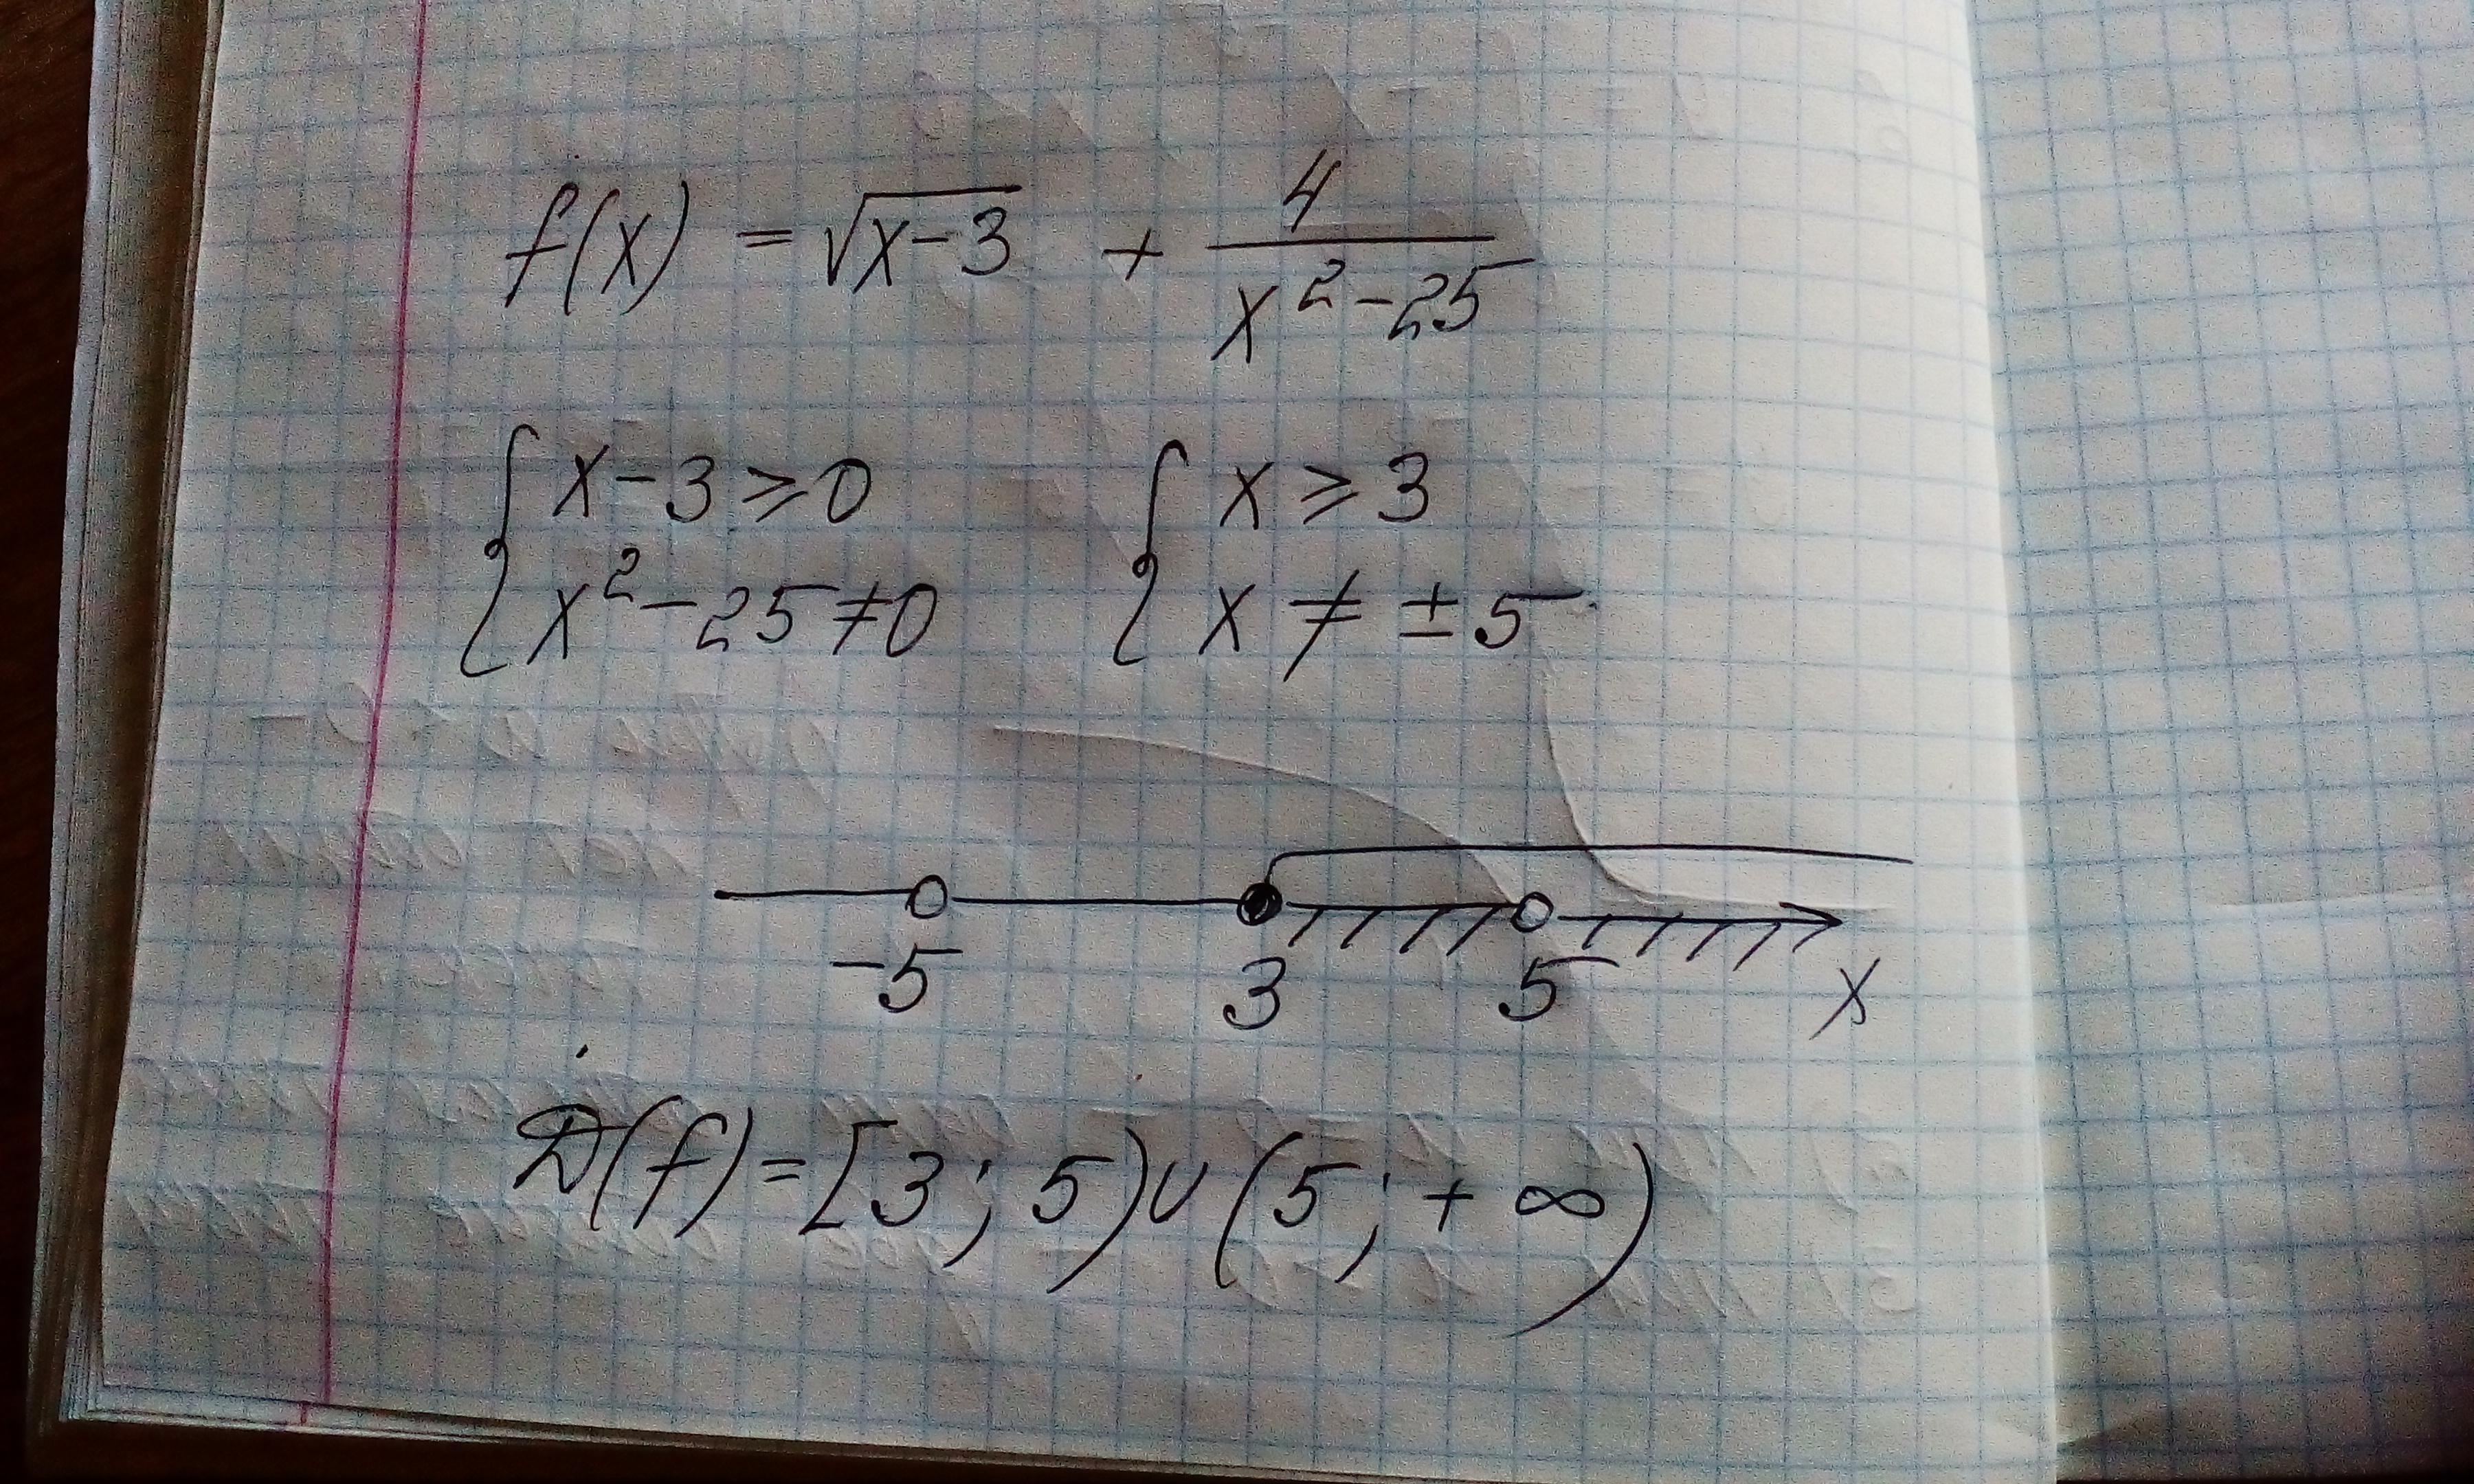 f(x) = √(x-3) + 4/(x²-25)
{ x-3≥0 { x ≥ 3
{ x²-25≠0 { x ≠ ±5
-5 3 5 x
D(f)=[3; 5)∪(5; +∞)